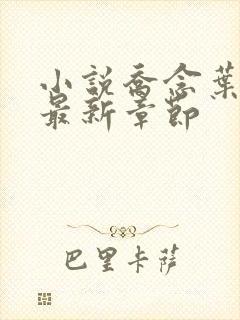 小説喬念葉
最新章節
巴里卡薩